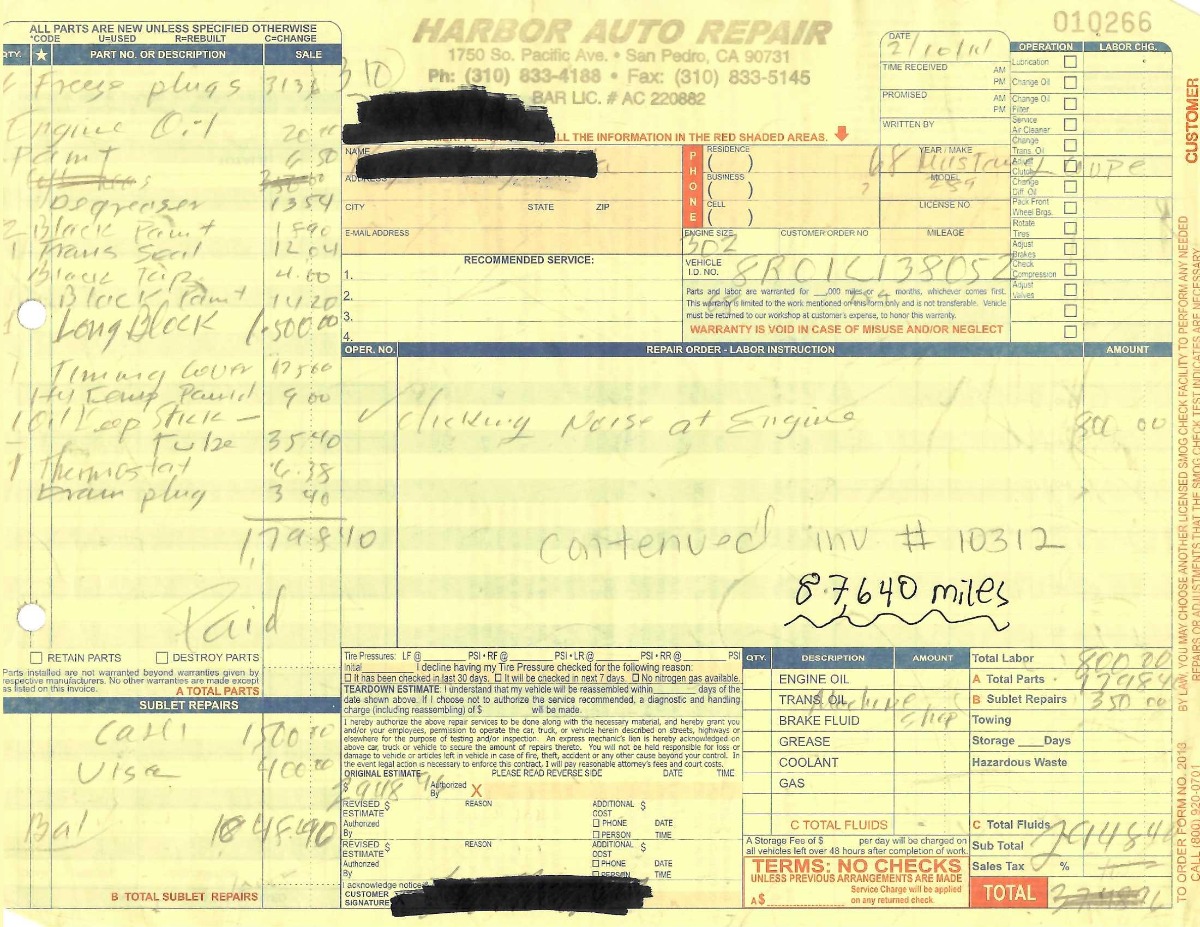 ALL PARTS ARE NEW UNLESS SPECIFIED OTHERWISE
*CODE U=USED R=REBUILT C=CHANGE
QTY. ★ PART NO. OR DESCRIPTION SALE
Freeze plugs
Engine Oil
Paint 6 50
Degreaser 13 54
2 Black Paint 18 90
1 Trans Seal 12 04
Black 4.00
Black Paint 14 20
1 Long Block 1,500.00
1 Timming Cover 125 00
Hy Temp 9 00
1 Oil Deep Stick -
Tube 35.40
1 Thermostat 6.38
Drain plug 3 40
1,798 40
Paid
RETAIN PARTS DESTROY PARTS
Parts installed are not warranted beyond warranties given by
respective manufacturers. No other warranties are made except
as listed on this invoice.
A TOTAL PARTS
SUBLET REPAIRS
Cash 1500
Visa 400 00
Bal
B TOTAL SUBLET REPAIRS
HARBOR AUTO REPAIR
1750 So. Pacific Ave. • San Pedro, CA 90731
Ph: (310) 833-4188 • Fax: (310) 833-5145
BAR LIC. # AC 220882
310
LL THE INFORMATION IN THE RED SHADED AREAS.
NAME
ADDRESS
CITY STATE ZIP
E-MAIL ADDRESS
PHONE
RESIDENCE
( )
BUSINESS
( )
CELL
( )
010266
DATE
2/10/11
TIME RECEIVED AM
PM
PROMISED AM
PM
WRITTEN BY
YEAR / MAKE
68 Mustang Coupe
MODEL
289
LICENSE NO
ENGINE SIZE CUSTOMER ORDER NO MILEAGE
302
VEHICLE
I.D. NO. 8R01C138052
Parts and labor are warranted for ,000 miles or months, whichever comes first.
This warranty is limited to the work mentioned on this form only and is not transferable. Vehicle
must be returned to our workshop at customer's expense, to honor this warranty.
WARRANTY IS VOID IN CASE OF MISUSE AND/OR NEGLECT
OPERATION LABOR CHG.
Lubrication
Change Oil
Change Oil
Filter
Service
Air Cleaner
Change
Trans. Oil
Adjust
Clutch
Change
Diff. Oil
Pack Front
Wheel Brgs.
Rotate
Tires
Adjust
Brakes
Check
Compression
Adjust
Valves
RECOMMENDED SERVICE:
1.
2.
3.
4.
OPER. NO. REPAIR ORDER - LABOR INSTRUCTION AMOUNT
✓ Clicking Noise at Engine 800 00
contenued inv # 10312
87,640 miles
Tire Pressures: LF @ PSI • RF @ PSI • LR @ PSI • RR @ PSI
Initial I decline having my Tire Pressure checked for the following reason:
It has been checked in last 30 days. It will be checked in next 7 days. No nitrogen gas available.
TEARDOWN ESTIMATE: I understand that my vehicle will be reassembled within days of the
date shown above. If I choose not to authorize the service recommended, a diagnostic and handling
charge (including reassembling) of $ will be made.
I hereby authorize the above repair services to be done along with the necessary material, and hereby grant you
and/or your employees, permission to operate the car, truck, or vehicle herein described on streets, highways or
elsewhere for the purpose of testing and/or inspection. An express mechanic's lien is hereby acknowledged on
above car, truck or vehicle to secure the amount of repairs thereto. You will not be held responsible for loss or
damage to vehicle or articles left in vehicle in case of fire, theft, accident or any other cause beyond your control. In
the event legal action is necessary to enforce this contract, I will pay reasonable attorney's fees and court costs.
ORIGINAL ESTIMATE PLEASE READ REVERSE SIDE DATE TIME
$ 2948 Authorized By X
REVISED ESTIMATE $ REASON ADDITIONAL COST $
Authorized By PHONE DATE
PERSON TIME
REVISED ESTIMATE $ REASON ADDITIONAL COST $
Authorized By PHONE DATE
PERSON TIME
I acknowledge notice
CUSTOMER
SIGNATURE
QTY. DESCRIPTION AMOUNT
ENGINE OIL
TRANS. OIL
Machine Shop
BRAKE FLUID
GREASE
COOLANT
GAS
C TOTAL FLUIDS
A Storage Fee of $ per day will be charged on
all vehicles left over 48 hours after completion of work.
TERMS: NO CHECKS
UNLESS PREVIOUS ARRANGEMENTS ARE MADE
Service Charge will be applied
A $ on any returned check.
Total Labor 800.00
A Total Parts 1798 40
B Sublet Repairs 350 00
Towing
Storage Days
Hazardous Waste
C Total Fluids
Sub Total 2948 40
Sales Tax %
TOTAL
CUSTOMER
BY LAW, YOU MAY CHOOSE ANOTHER LICENSED SMOG CHECK FACILITY TO PERFORM ANY NEEDED
REPAIRS OR ADJUSTMENTS THAT THE SMOG CHECK TEST INDICATES ARE NECESSARY.
TO ORDER FORM NO. 2013
CALL (800) 920-0701